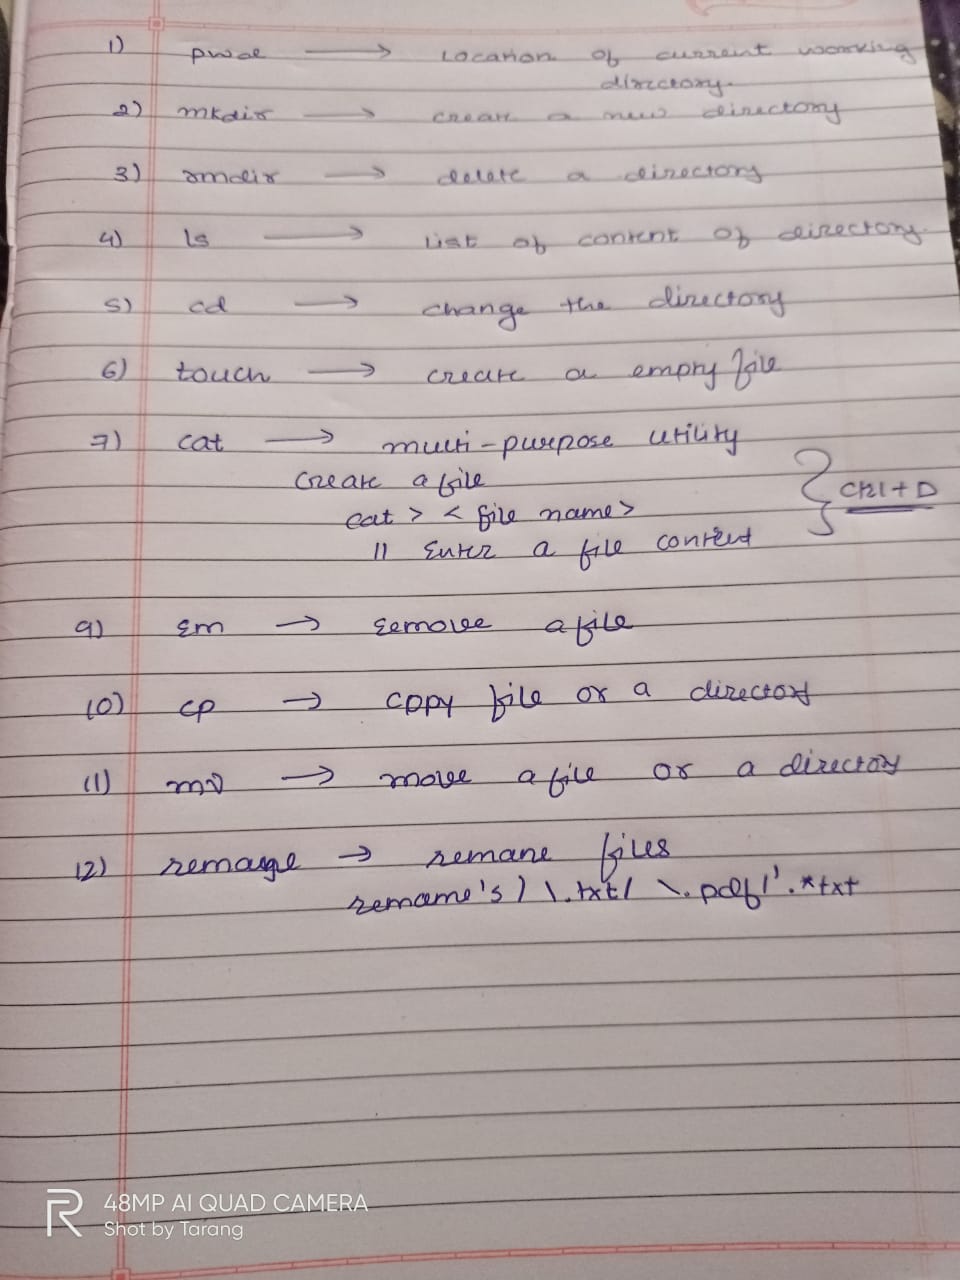 1) pwd → Location of current working
directory.
2) mkdir → create a new directory
3) rmdir → delete a directory
4) ls → List of content of directory.
5) cd → change the directory
6) touch → create a empty file
7) cat → multi-purpose utility
create a file
cat > < file name > } Ctrl + D
11 Enter a file content
9) rm → remove a file
10) cp → copy file or a directory
11) mv → move a file or a directory
12) → remane files
rename's ) \.txt/ \.pdf/'.*txt
48MP AI QUAD CAMERA
Shot by Tarang